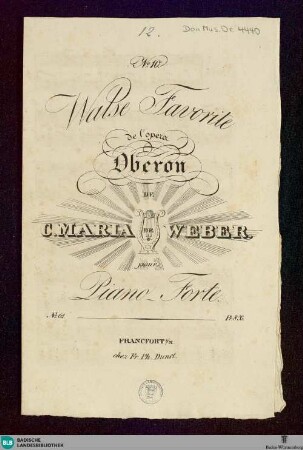 12.
Don Mus. Dr. 4440
No. 10.
Walse Favorite
de l'opera
Oberon
DE
C. MARIA DE WEBER,
pour
Piano-Forte.
No. 62
18 X.
FRANCFORT s/M
chez Fr. Ph. Dunst.
BLB
BADISCHE
LANDESBIBLIOTHEK
Baden-Württemberg